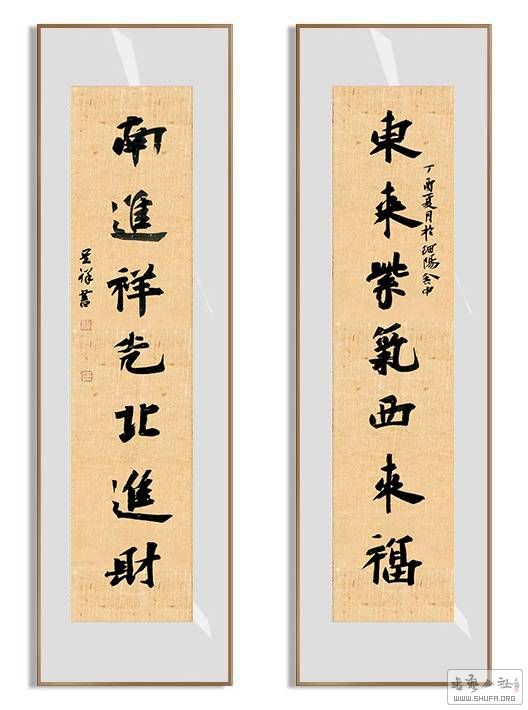 東来紫氣西来福
丁酉夏月於細陽舍中
南進祥光北進財
祥書
書藝公社
WWW.SHUFA.ORG